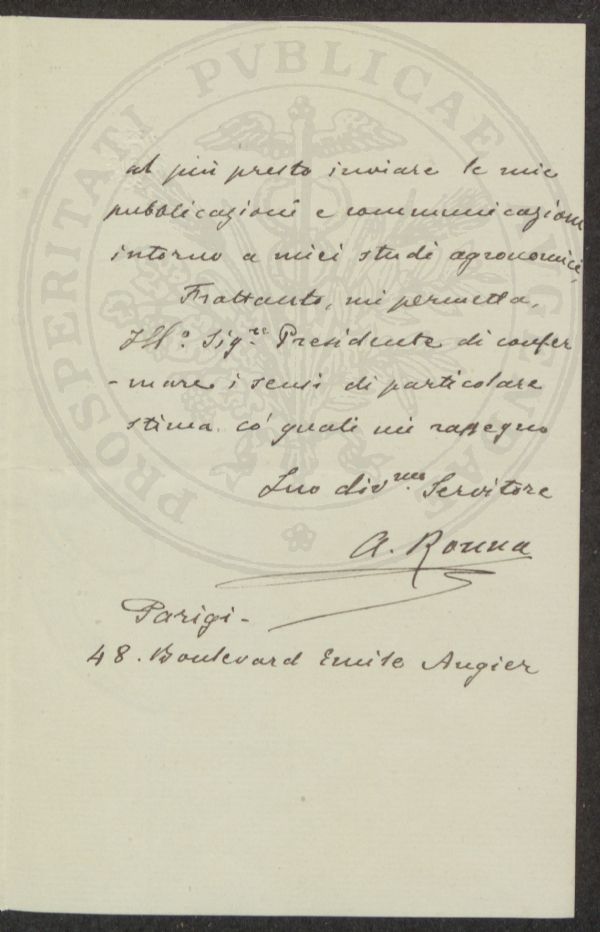 PROSPERITATI PVBLICAE AVGENDAE
al più presto inviare le mie
pubblicazioni e communicazioni
intorno a miei studi agronomici,
Frattanto, mi permetta,
Ill.º Sig.re Presidente di confer
-mare i sensi di particolare
stima co' quali mi rassegno
Suo div.mo Servitore
A. Ronna
Parigi-
48. Boulevard Emile Augier